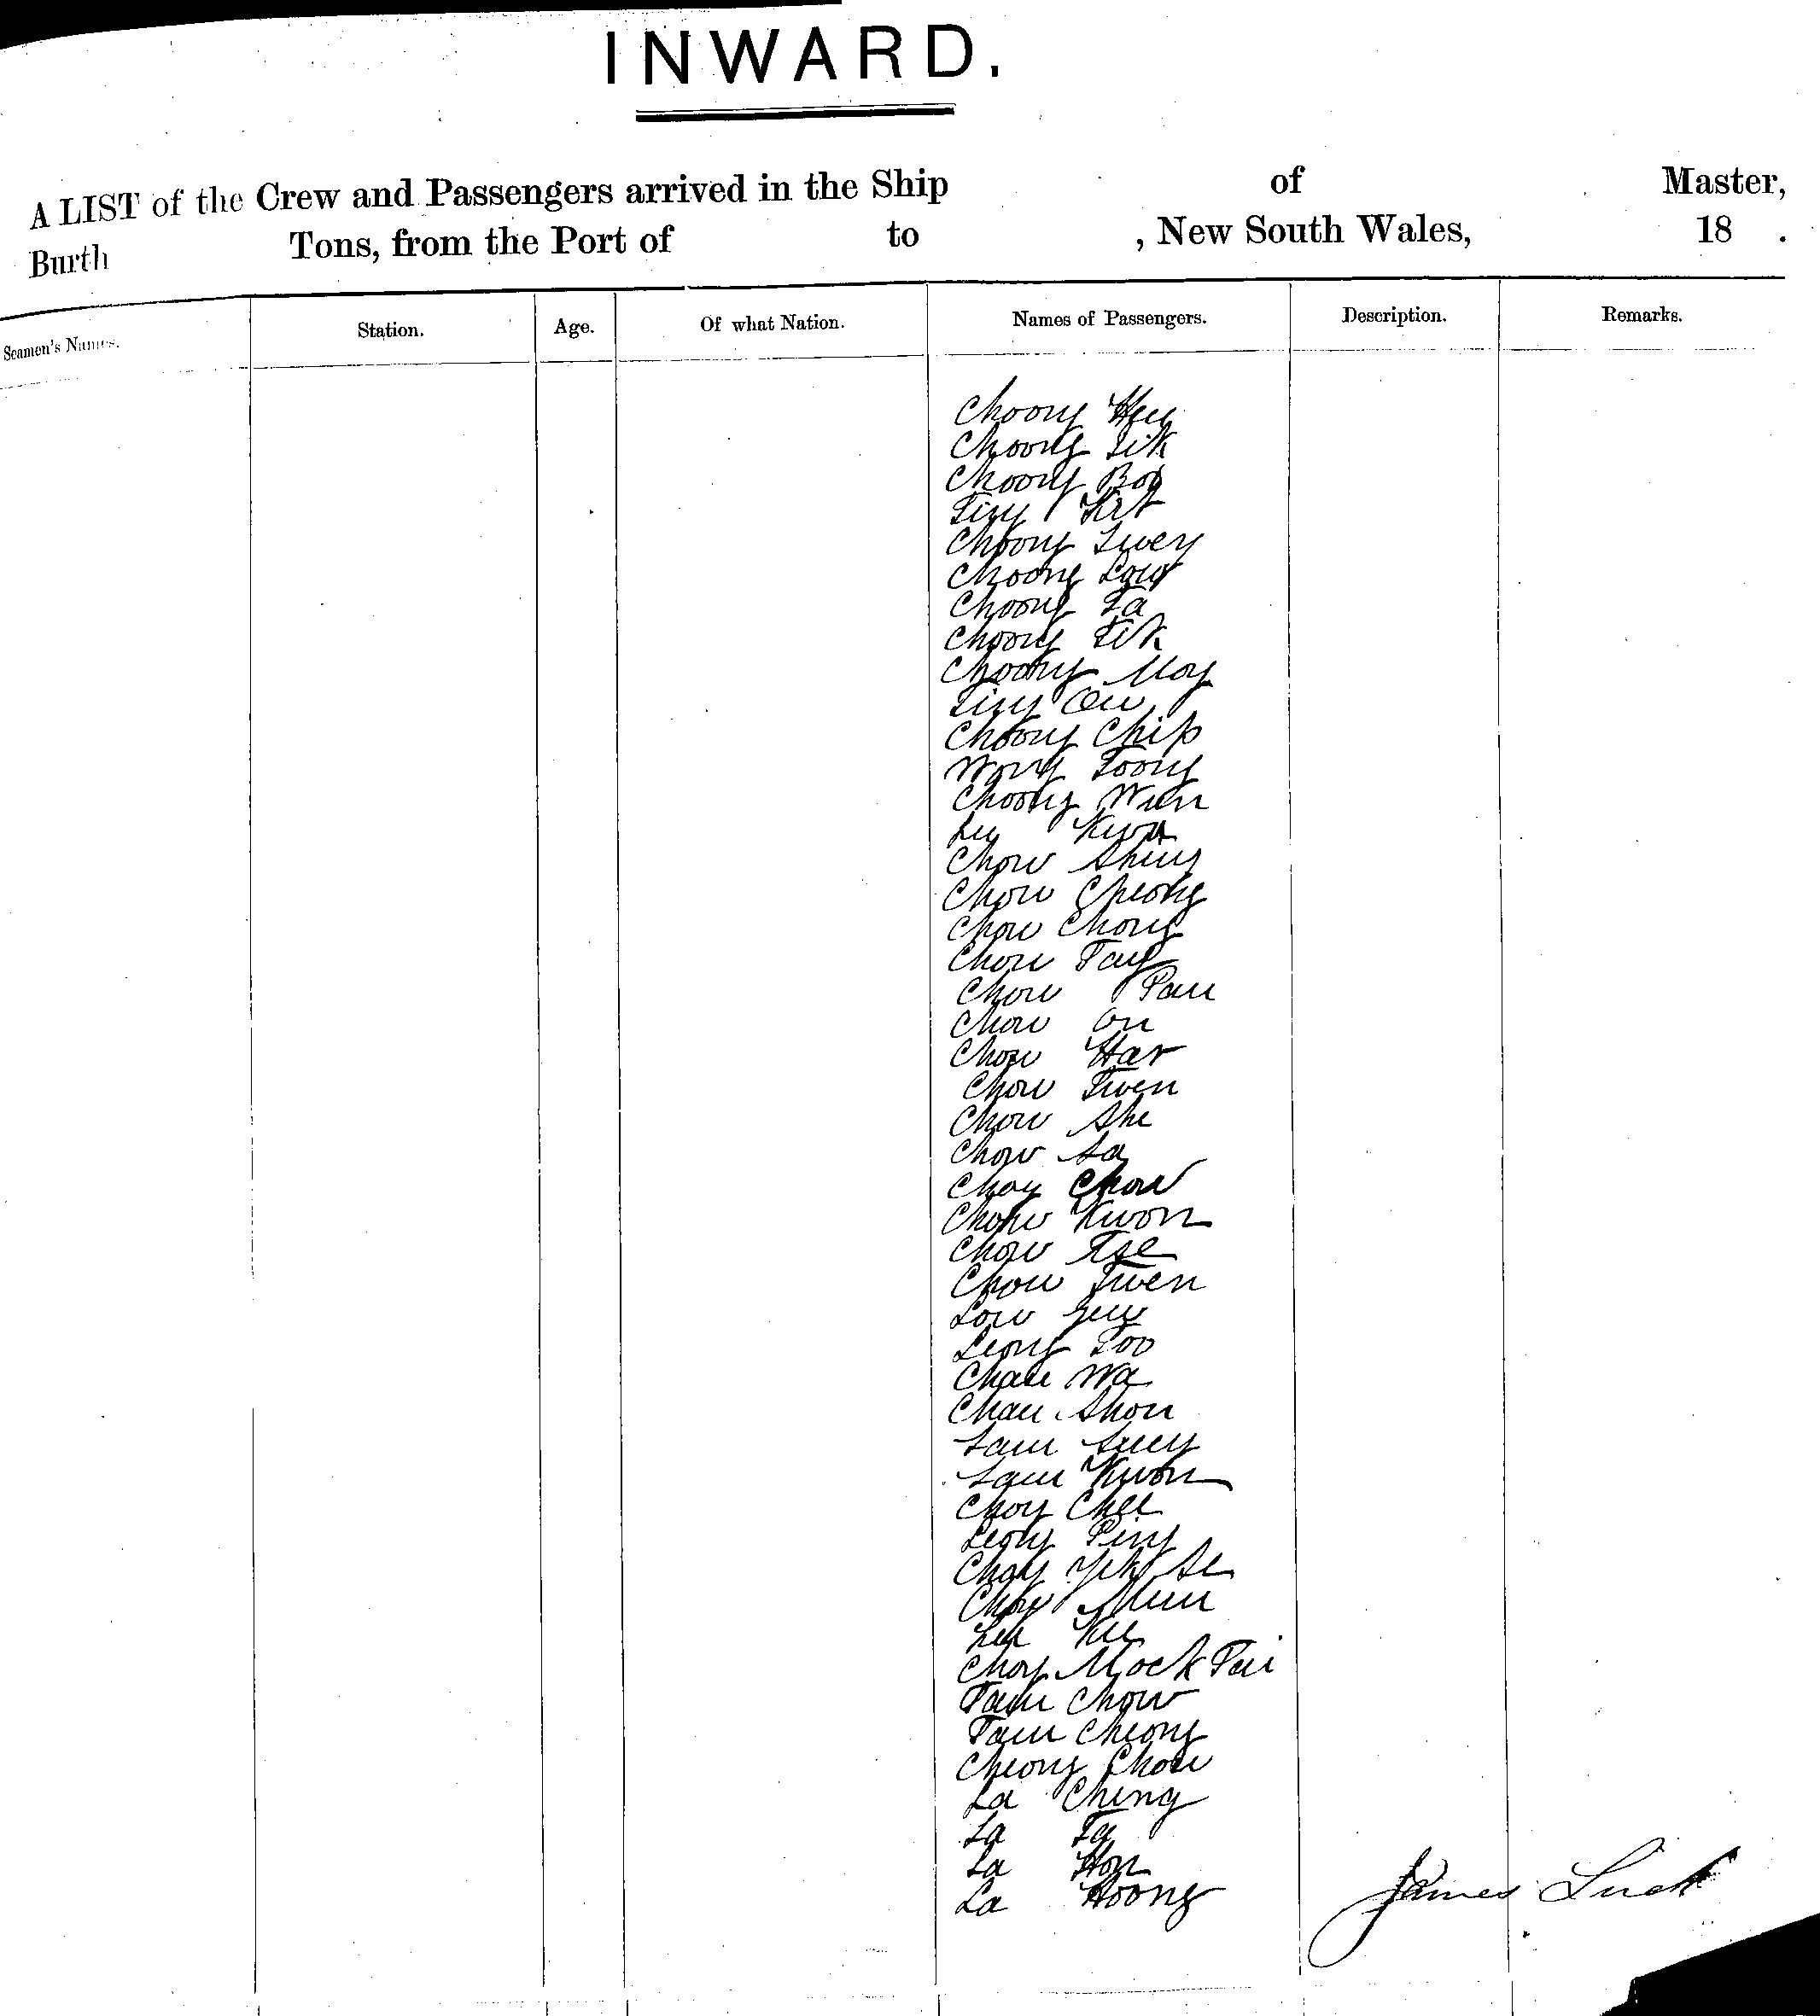 INWARD.
A LIST of the Crew and Passengers arrived in the Ship of Master,
Burth Tons, from the Port of to , New South Wales, 18 .
Seamen's Names. Station. Age. Of what Nation. Names of Passengers. Description. Remarks.
Choong
Choong Sik
Choong Boy
Ting Kat
Choong
Choong Low
Choong Ta
Choong Tik
Choong Moy
Ting On
Choong Chip
Wong Toong
Choong Wun
Kwa
Chow Shing
Chow Cheong
Chow Chong
Chow Tay
Chow Pan
Chow On
Chow Har
Chow Twen
Chow She
Chow Sa
Choy Chow
Chow Kwon
Chow Tse
Chow Twen
Low
Leong Too
Chan Wa
Chan Shon
Sam Suey
Sam Kwon
Choy Chee
Leong Ping
Choy Yik Se
Choy Mun
Kee
Choy Mock Pui
Tam Chow
Tam Cheong
Cheong Chow
La Ching
La Ta
La Hon
La Hoong
James